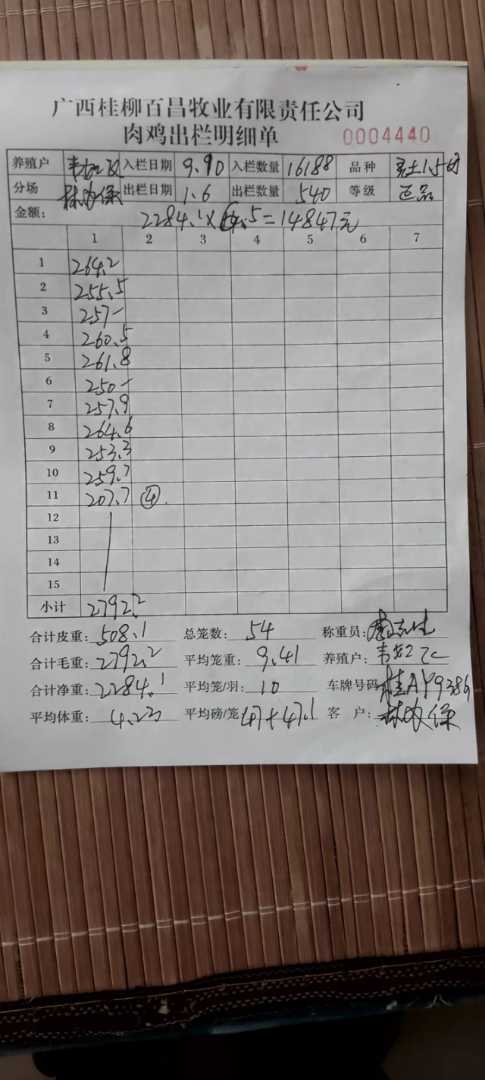 广西桂柳百昌牧业有限责任公司
肉鸡出栏明细单 0004440
养殖户 入栏日期 9.90 入栏数量 16188 品种 土1.5
分场 出栏日期 1.6 出栏数量 540 等级 正品
金额： 2284.1×6.5=14847元
1 2 3 4 5 6 7
1 264.2
2 255.5
3 257-
4 260.5
5 261.8
6 250-
7 257.9
8 264.6
9 253.3
10 259.7
11 207.7 ④
12
13
14
15
小计 2792.2
合计皮重：508.1 总笼数：54 称重员：
合计毛重：2792.2 平均笼重：9.41 养殖户：
合计净重：2284.1 平均笼/羽：10 车牌号码：桂AY9386
平均体重：4.23 平均磅/笼 47+47.1 客户：林 保